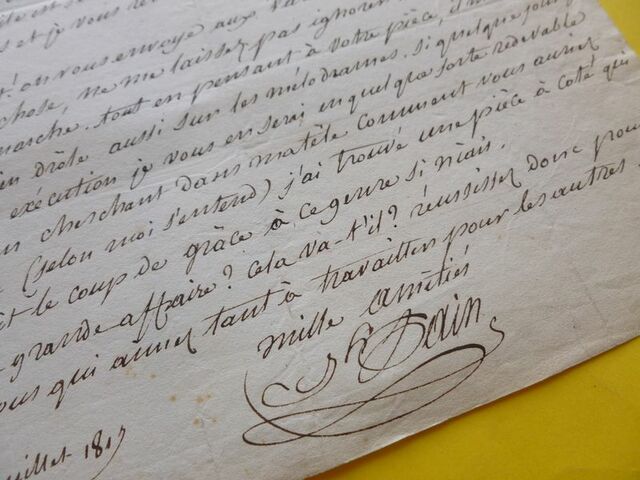 et je vous re
t'on vous envoye aux Va
chose, ne me laissez pas ignorer
marche. tout en pensant à votre pièce, il m'
en drôle aussi sur les mélodrames. si quelque jour
exécution je vous en serai en quelque sorte redevable
en cherchant dans ma tête comment vous auriez
(selon moi s'entend) j'ai trouvé une pièce à coté qui
it le coup de grâce à ce genre si niais.
grande affaire? cela va-t'il? réussissez donc pour
ous qui aimez tant à travailler pour les autres.
mille amitiés
Dain
uillet 1817